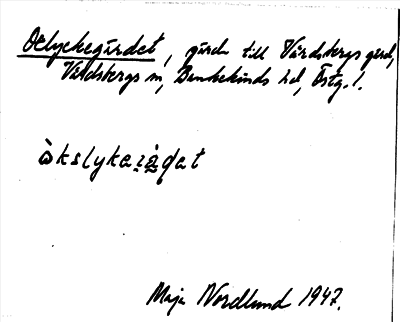 Oxlyckegärdet, gärde till Vårdsbergs gård,
Vårdsbergs sn, Bankekinds hd, Östg. l.
Maja Nordlund 1947.